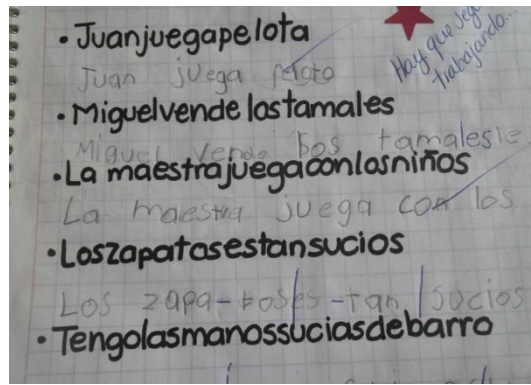 • Juanjuegapelota
Juan juega peloto
Hay que seguir
trabajando...
• Miguelvende lostamales
Miguel vende los tamales
• La maestrajuegaconlosniños
La maestra juega con los
• Loszapatosestansucios
Los zapa-toses-tan sucios
• Tengolasmanossuciasdebarro